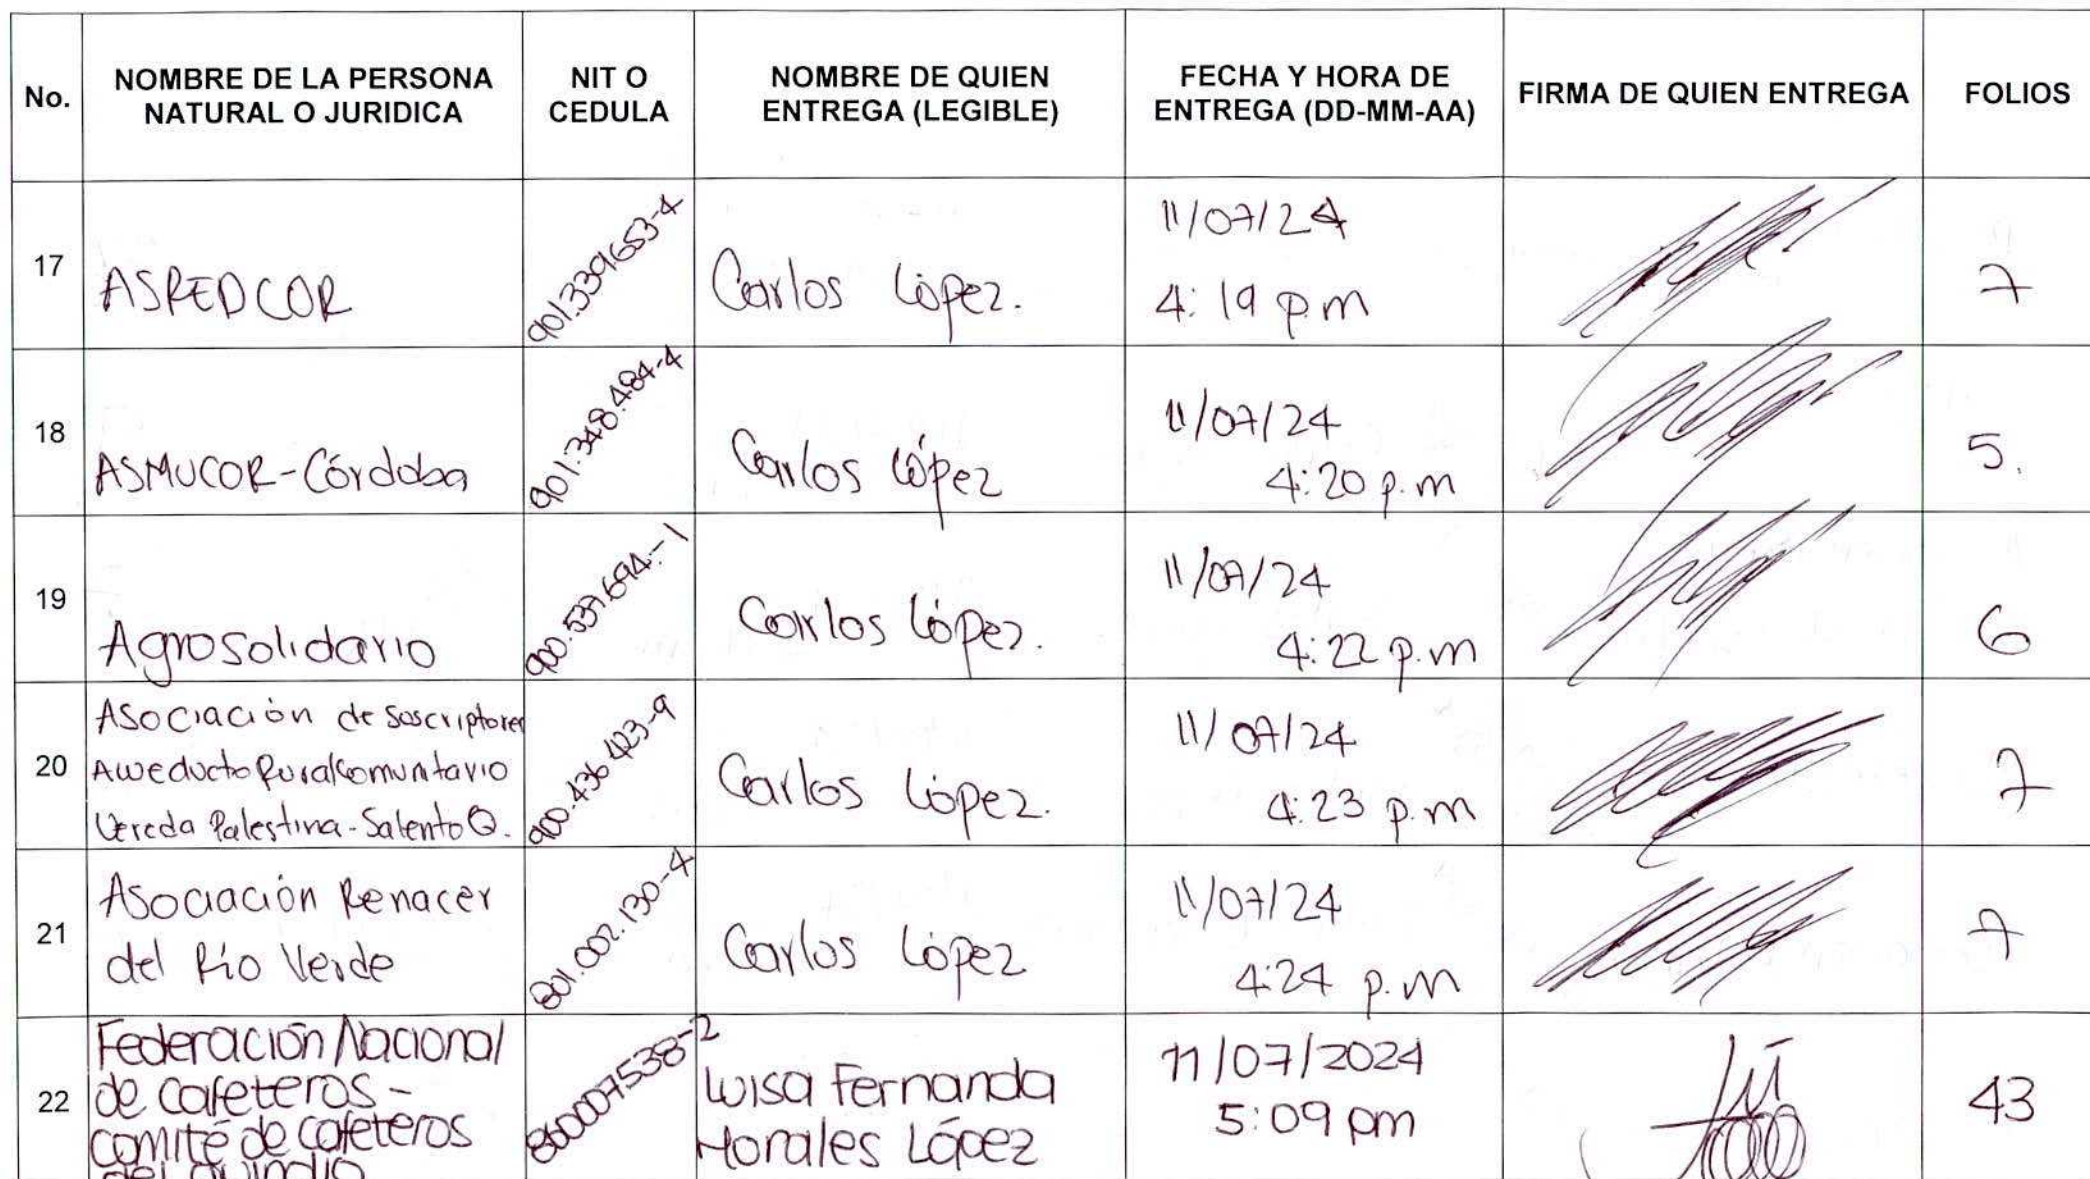 No.
NOMBRE DE LA PERSONA
NATURAL O JURIDICA
NIT O
CEDULA
NOMBRE DE QUIEN
ENTREGA (LEGIBLE)
FECHA Y HORA DE
ENTREGA (DD-MM-AA)
FIRMA DE QUIEN ENTREGA
FOLIOS
17
ASREDCOR
901.339653-4
Carlos López.
11/07/24
4:19 p.m
7
18
ASMUCOR-Córdoba
901.348.484-4
Carlos López
11/07/24
4:20 p.m
5.
19
Agrosolidario
900.537.694.-1
Carlos López.
11/07/24
4:22 p.m
6
20
Asociación de Suscriptores
Acueducto Rural Comunitario
Vereda Palestina-Salento Q.
900.436.423-9
Carlos López.
11/07/24
4:23 p.m
7
21
Asociación Renacer
del Río Verde
801.002.130-4
Carlos López
11/07/24
4:24 p.m
7
22
Federación Nacional
de cafeteros -
comité de cafeteros
del Quindío
860007538-2
Luisa Fernanda
Morales López
11/07/2024
5:09 pm
43